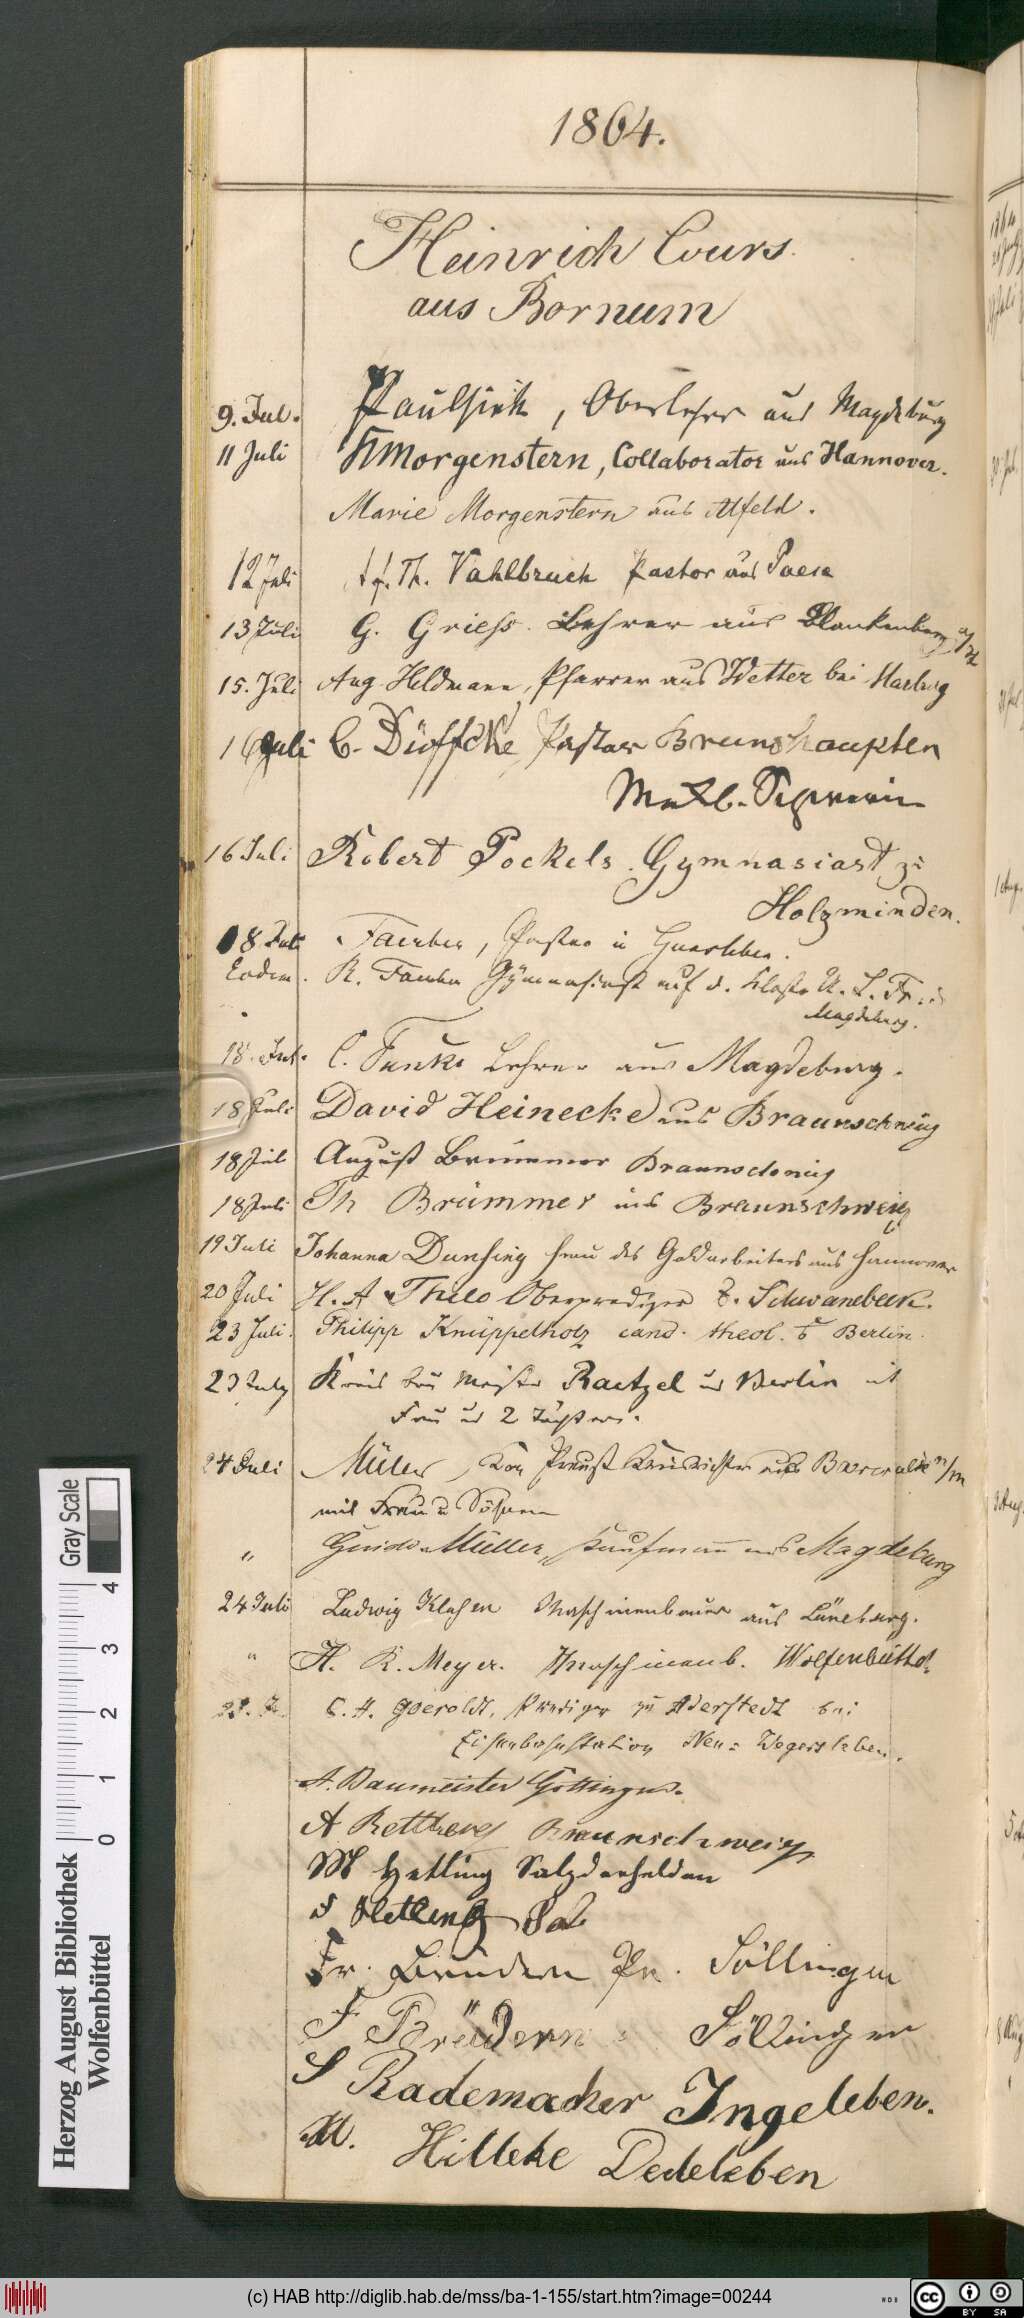 1864.
Heinrich Cours.
aus Bornum
9. Jul. Paulsiek, Oberlehrer aus Magdeburg
11 Juli HMorgenstern, Collaborator aus Hannover.
Marie Morgenstern aus Alfeld.
12 Juli Th. Vahlbruch Pastor aus
13 Juli G. Griess. Lehrer aus Blankenburg a/H
15. Juli Aug Heldmann, Pfarrer aus Wetter bei Marburg
16 Juli C. Düffcke, Pastor Brunshaupten
Mekl.-Schwerin
16 Juli Robert Pockels. Gymnasiast zu
Holzminden.
18 Juli Faerber, Pastor in
Eodem. R. Gymnasiast auf d. Kloster U. L. Fr.
Magdeburg.
18. Jul. C. Funke Lehrer aus Magdeburg.
18 Juli David Heinecke aus Braunschweig
18 Juli August Brümmer Braunschweig
18 Juli Th Brümmer aus Braunschweig
19 Juli Johanna Dunsing Frau des Goldarbeiters aus Hannover
20 Juli H. A Thilo Oberprediger z. Schwanebeck.
23 Juli. Philipp Knüppelholz cand. theol. Berlin.
23 July Raetzel Berlin mit
Frau und 2 Töchtern.
24 Juli Müller, Kreisrichter aus n/m
mit Frau u Söhnen
" Guido Müller, Kaufmann aus Magdeburg
24 Juli Ludwig Maschinenbauer aus Lüneburg.
" H. R. Meyer. Maschinenb. Wolfenbüttel.
C. H. Goeroldt, Prediger zu Aderstedt bei
Eisenbahnstation Neu=Wegersleben.
A. Baumeister Göttingen.
A Rettberg Braunschweig
M Hetling Salzderhelden
Hetling Sal
Fr. Brüdern Pr. Söllingen
F Brüdern Söllingen
S Rademacher Ingeleben.
M. Hilleke Dedeleben
Herzog August Bibliothek
Wolfenbüttel
Gray Scale
0 1 2 3 4
(c) HAB http://diglib.hab.de/mss/ba-1-155/start.htm?image=00244
cc BY SA